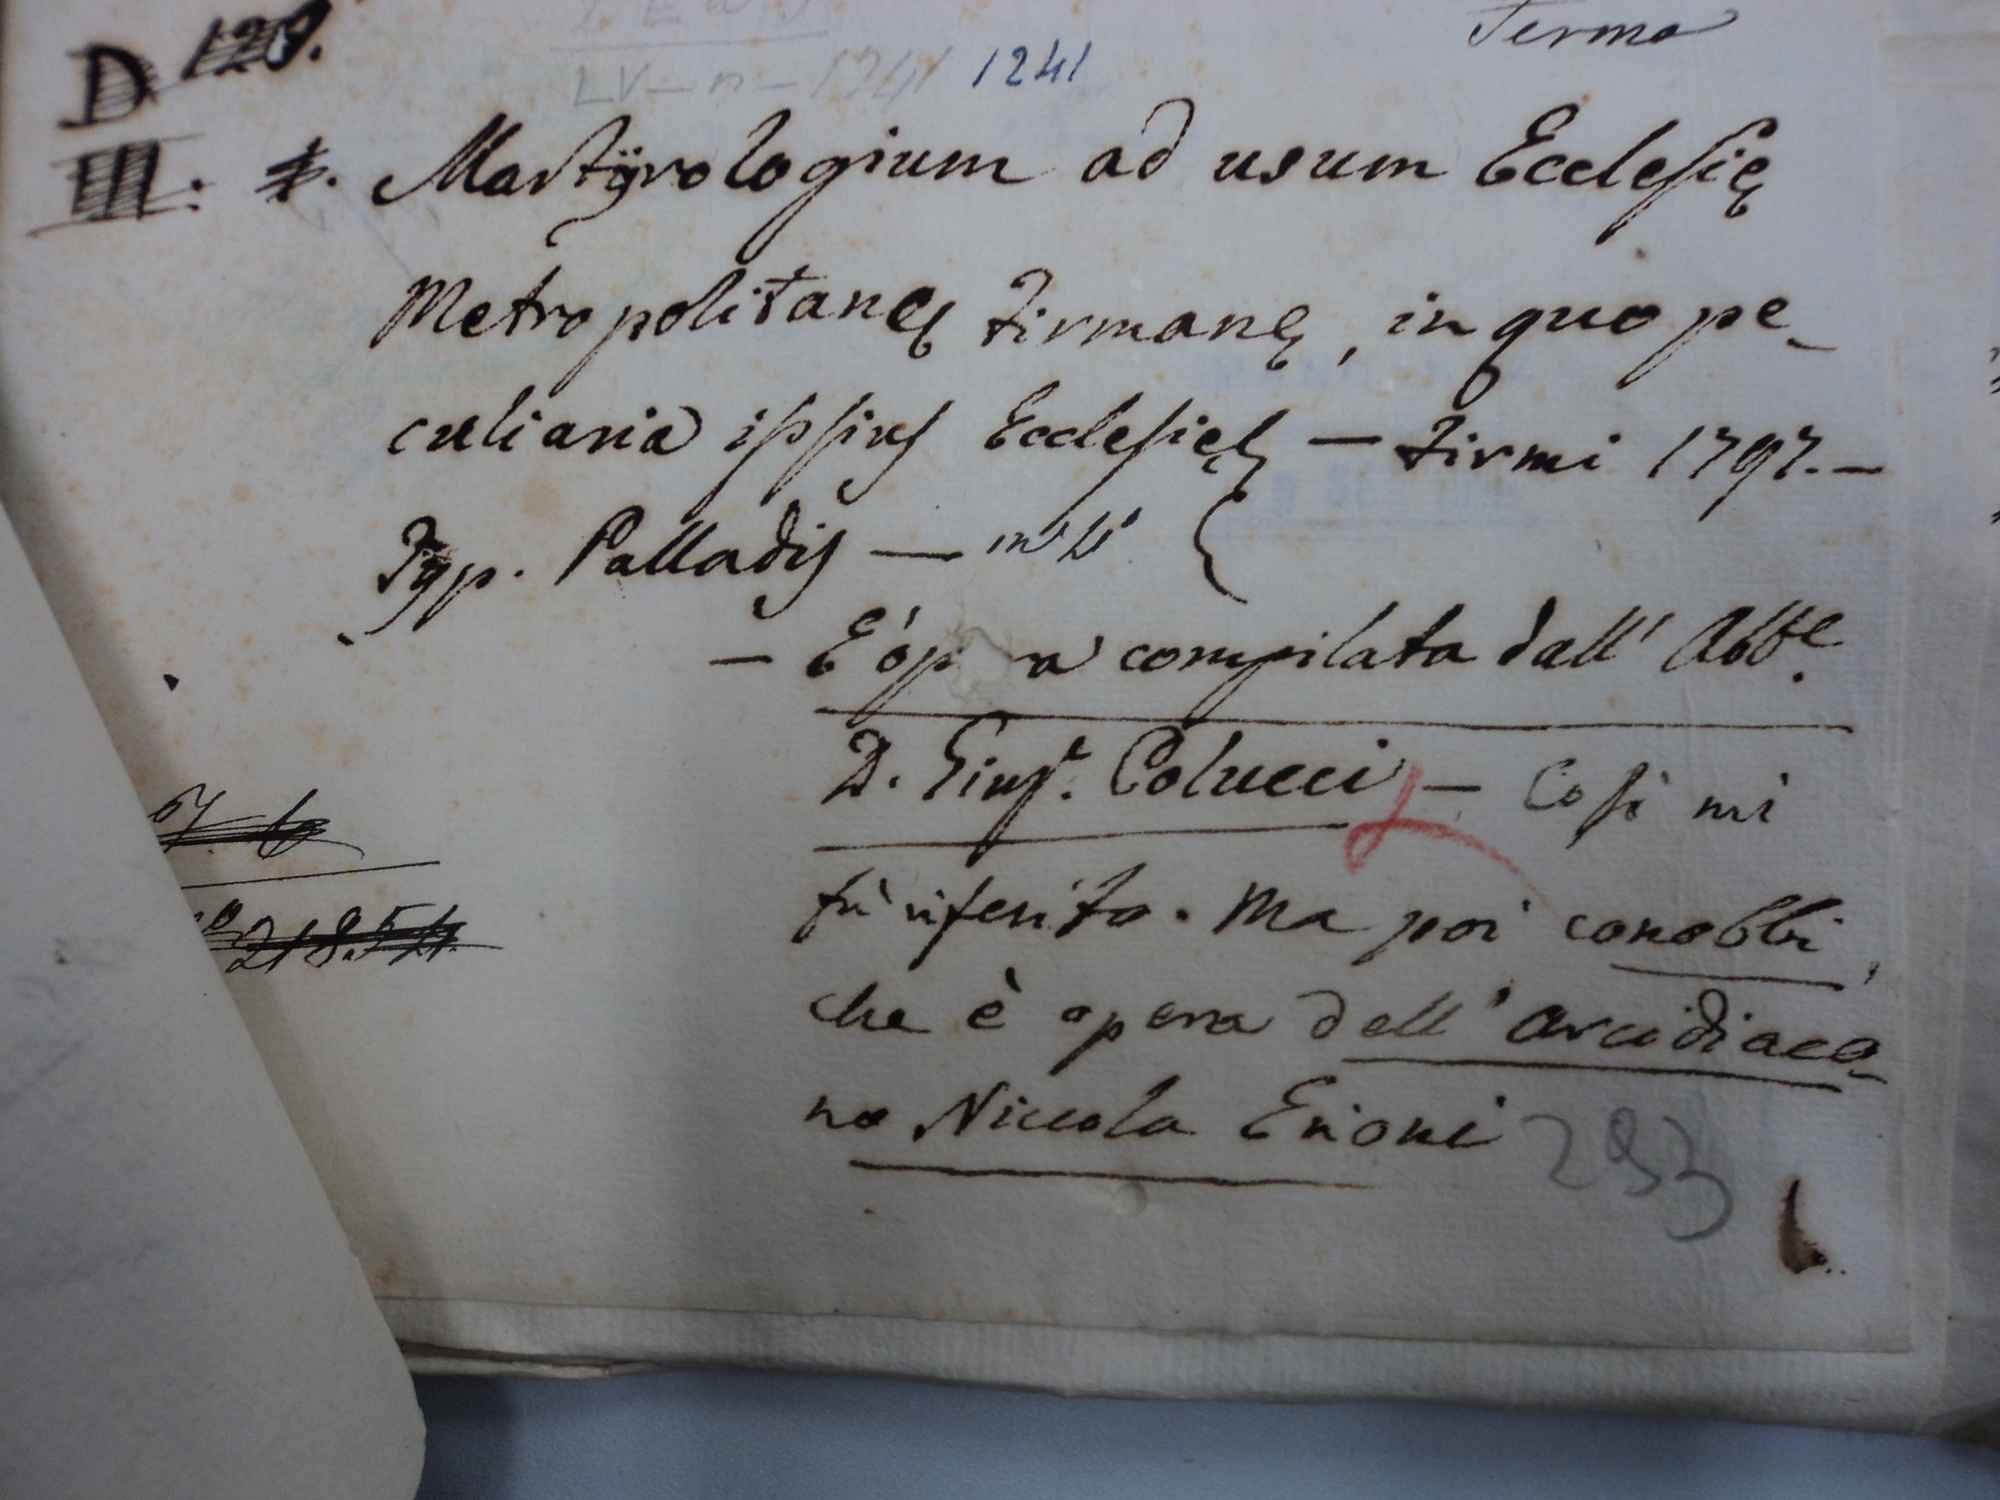 Fermo
D 129.
1241
III: 4. Martÿrologium ad usum Ecclesię
Metropolitanę Firmanę, in quo pe-
culiaria ipsius Ecclesię — Firmi 1797. —
Typ. Palladis — in 4°
— E' op a compilata dall' Abbe.
D. Giusᵉ. Colucci — Così mi
fù riferito. Ma poi conobbi,
che è opera dell' Arcidiaco-
no Niccola Erioni
293
218.54.